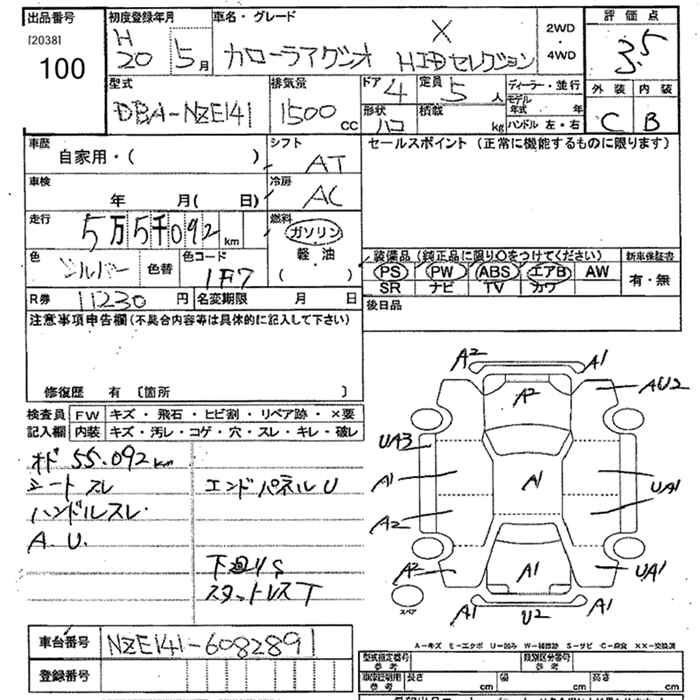 出品番号
[2038]
100
初度登録年月
H
20 5月
車名・グレード
X
カローラアクシオ HIDセレクション
2WD
・
4WD
評価点
3.5
外装 内装
C B
型式
DBA-NZE141
排気量
1500 cc
ドア 4
形状 ハコ
定員 5 人
積載 kg
ディーラー・並行
モデル年式 年
ハンドル 左・右
車歴
自家用・( )
シフト
AT
車検
年 月( 日)
冷房
AC
走行
5万5千092 km
燃料
ガソリン
軽・油
( )
色 シルバー 色替 色コード 1F7
R券 11230 円 名変期限 月 日
セールスポイント (正常に機能するものに限ります)
装備品(純正品に限り○をつけてください) 新車保証書
PS PW ABS エアB AW
SR ナビ TV カワ
有・無
後日品
注意事項申告欄(不具合内容等は具体的に記入して下さい)
修復歴 有 〔箇所 〕
検査員 FW キズ・飛石・ヒビ割・リペア跡・×要
記入欄 内装 キズ・汚レ・コゲ・穴・スレ・キレ・破レ
オド 55.092km
シートスレ エンドパネルU
ハンドルスレ.
A.U.
下廻りS
スタットレスT
A2 A1
A2 AU2
UA3
A1 A1 UA1
A2
A2 A1 UA1
スペア
A1 U2 A1
車台番号 NZE141-6082891
登録番号
A−キズ E−エクボ U−凹み W−補修跡 S−サビ C−腐食 XX−交換済
型式指定番号 参考 類別区分番号 参考
参考 長さ cm 幅 cm 高さ cm